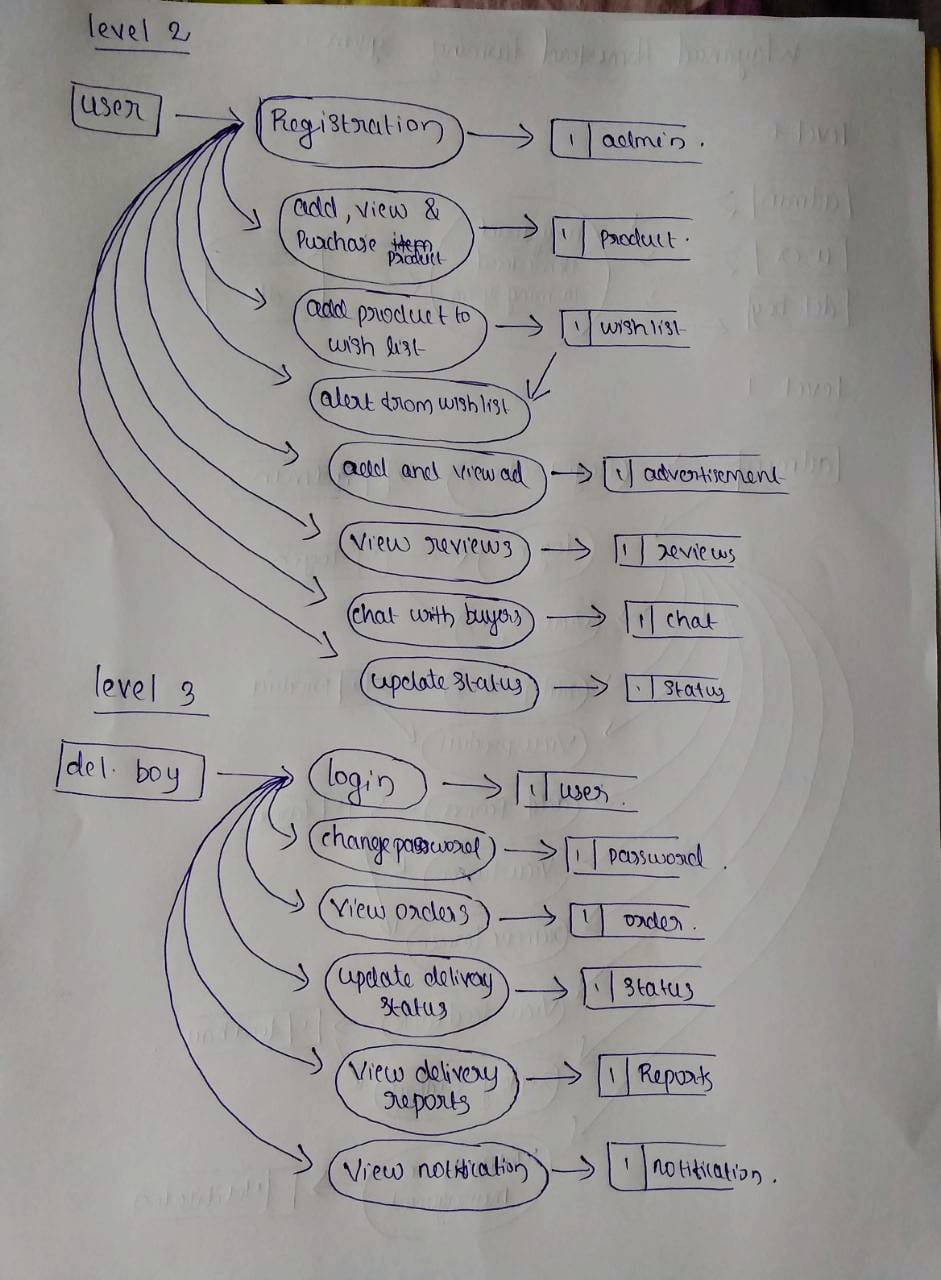 level 2
user
Registration
1 admin.
add, view &
Purchase item
product
1 product.
add product to
wish list
1 wishlist
alert from wishlist
add and view ad
1 advertisement
view reviews
1 reviews
chat with buyers
1 chat
update status
1 status
level 3
del. boy
login
1 user.
change password
1 password.
view orders
1 order.
update delivery
status
1 status
view delivery
reports
1 Reports
view notification
1 notification.